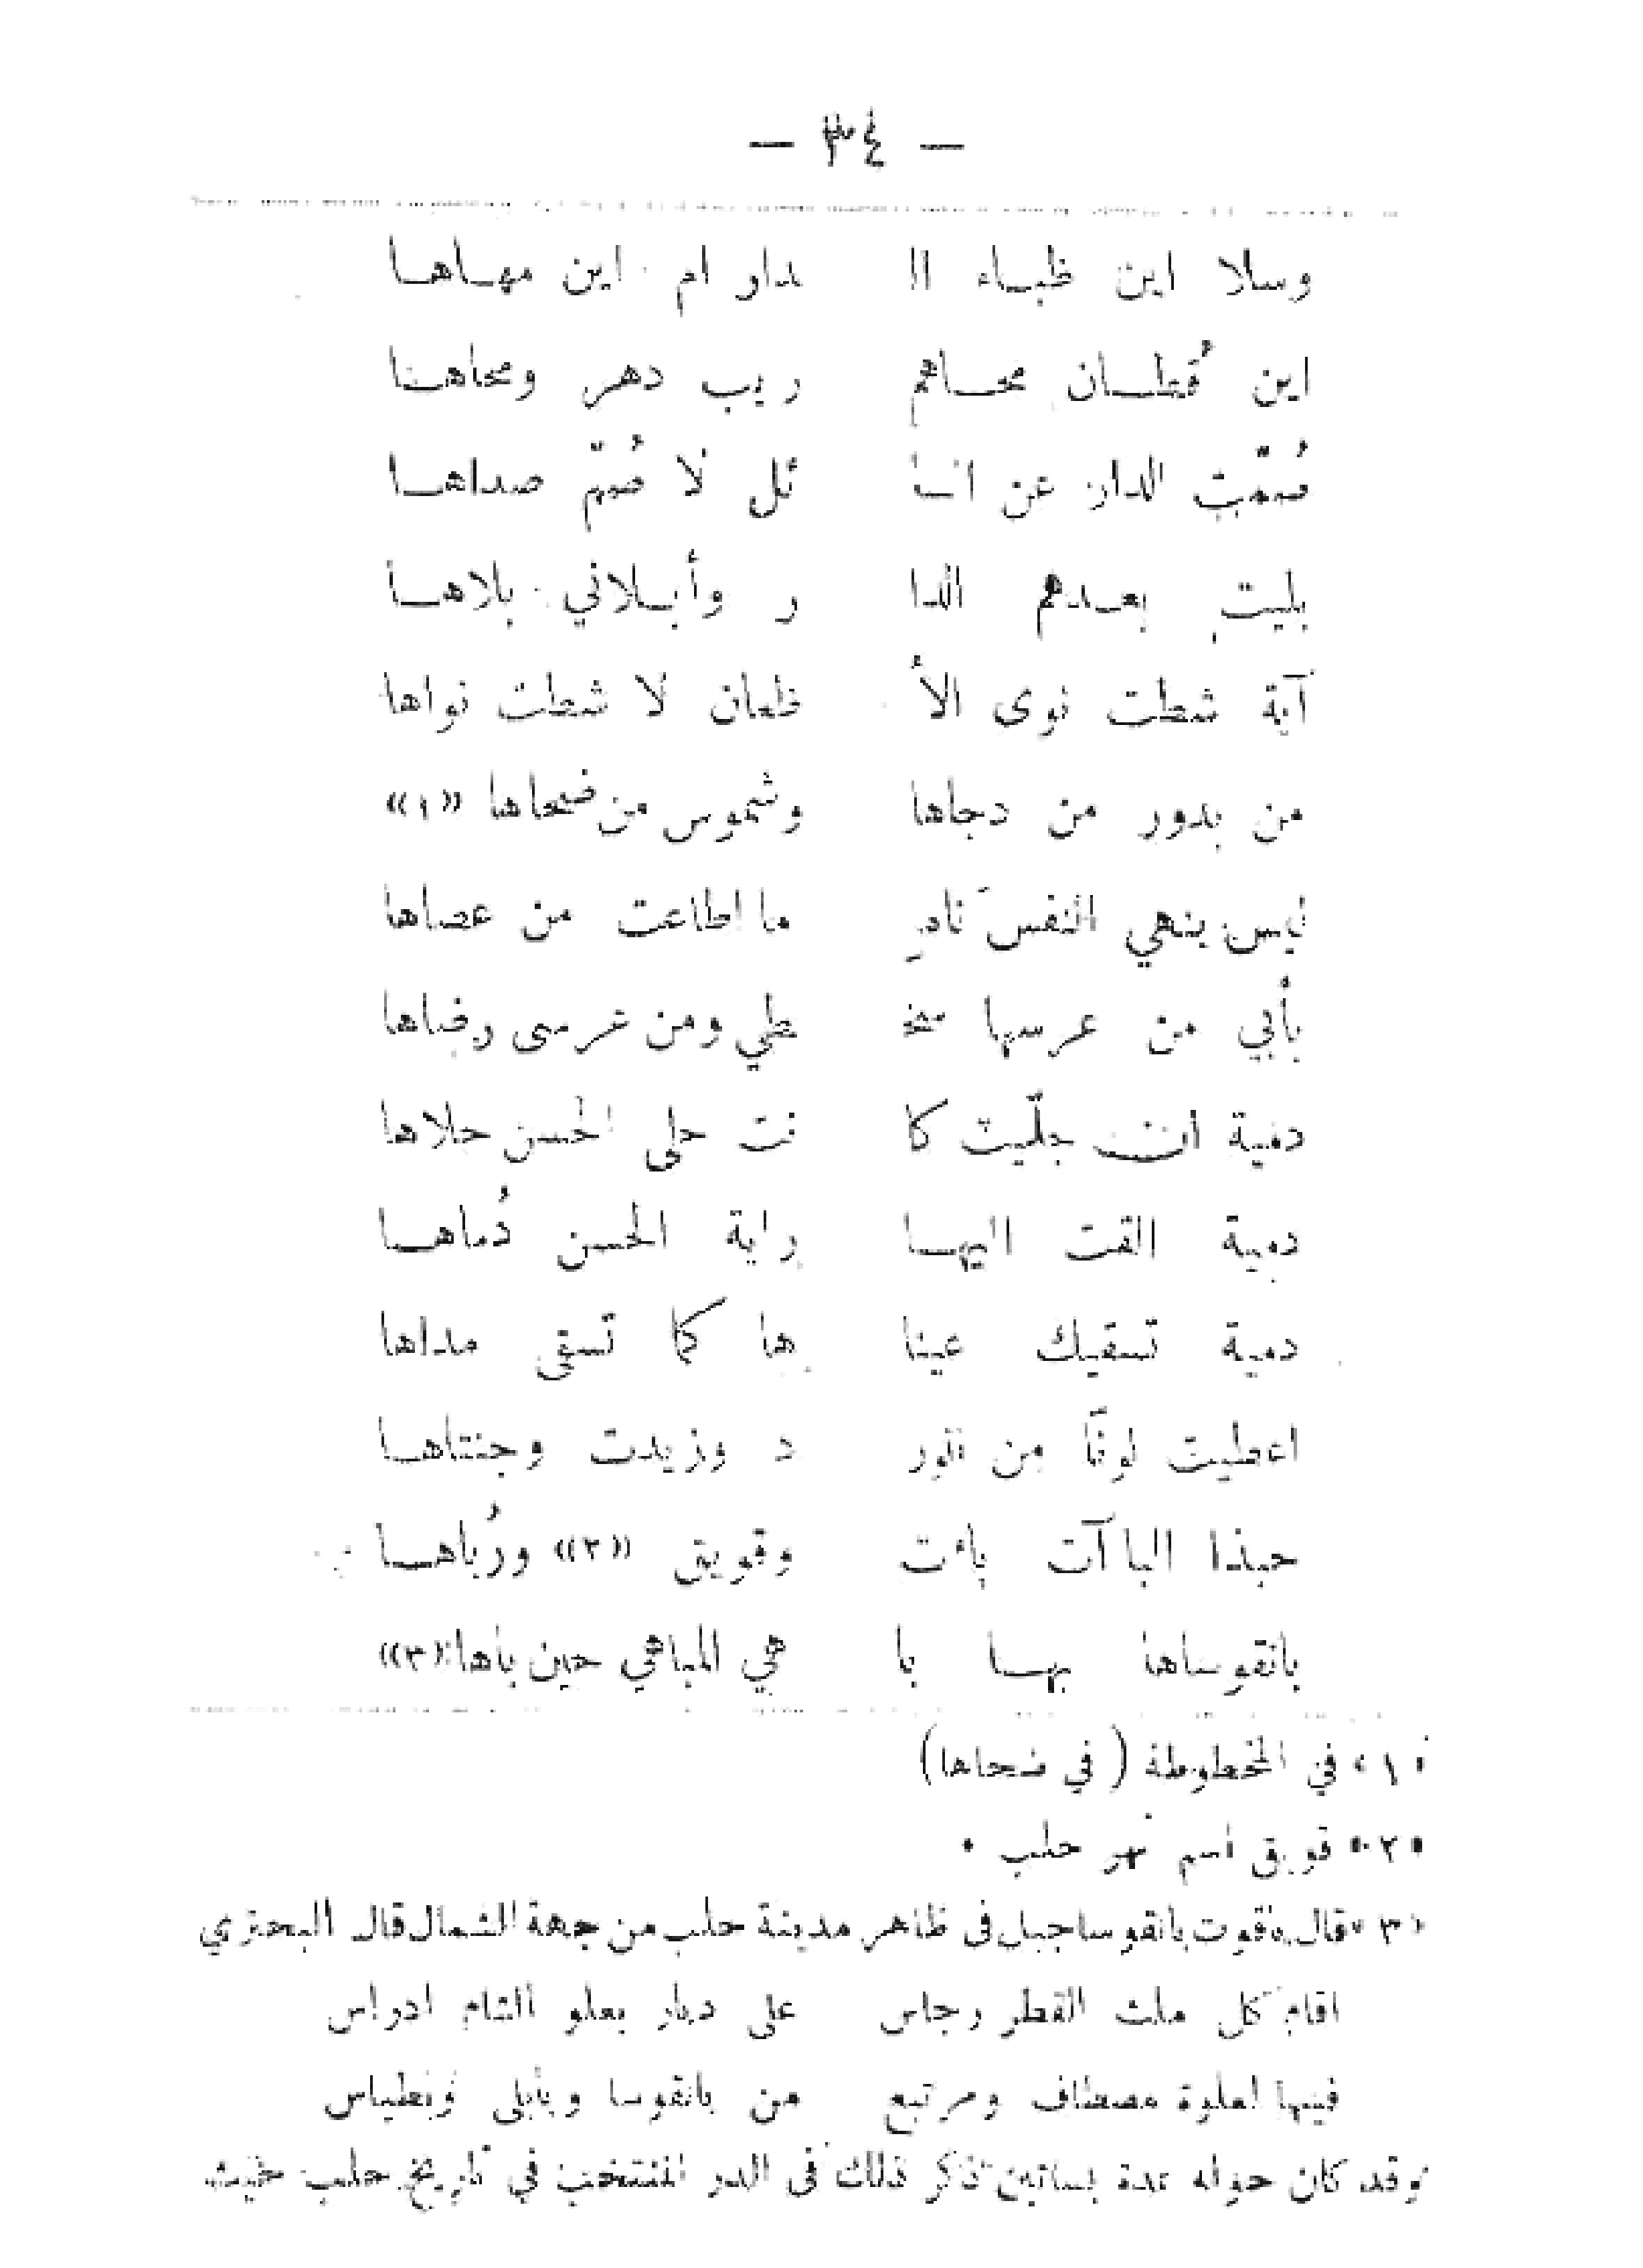 — ٣٤ —
وسلا اين ظبـاء الـ دار ام اين مهـاهـا
اين قُطـان محـاهم ريب دهر ومحاهـا
صُمّت الدار عن السا ئل لا صُمّ صداهـا
بليت بعـدهم الدا ر وأبـلاني بلاهـا
آية شطت نوى الأ ظعان لا شطت نواها
من بدور من دجاها وشموس من ضحاها «١»
ليس ينهي النفسَ ناهٍ ما اطاعت من عصاها
بأبي من عرسها سخـ ـطي ومن عرسى رضاها
دمية ان جلّيت كا نت حلى الحسن حلاها
دمية القت اليهـا راية الحسن دُماهـا
دمية تسقيك عينا ها كما تسقى مداها
اعطيت لونًا من الور د وزيدت وجنتاهـا
حبذا الباآت باءت وقويق «٢» ورُباهـا
بانقوساها بهـا با هي المباهي حين باها «٣»
«١» في المخطوطة ( في ضحاها )
«٢» قويق اسم نهر حلب .
«٣» قال ياقوت بانقوسا جبل فى ظاهر مدينة حلب من جهة الشمال قال البحتري
اقام كل ملث القطر رجاس على ديار بعلو الشام ادراس
فيها لعلوة مصطاف ومرتبع من بانقوسا وبابلى وبطياس
وقد كان حوله عدة بساتين ذكر ذلك فى الدر المنتخب في تاريخ حلب حيث